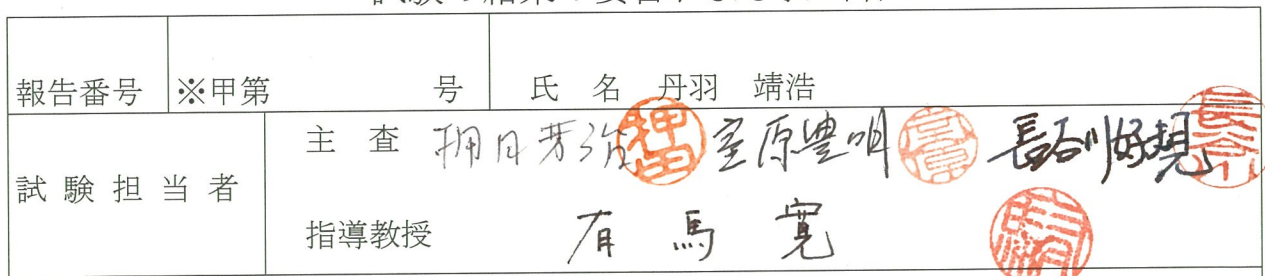 報告番号 ※甲第 号 氏 名 丹羽 靖浩
試験担当者
主 査 押田芳治 室原豊明 長谷川好規
指導教授 有馬寛